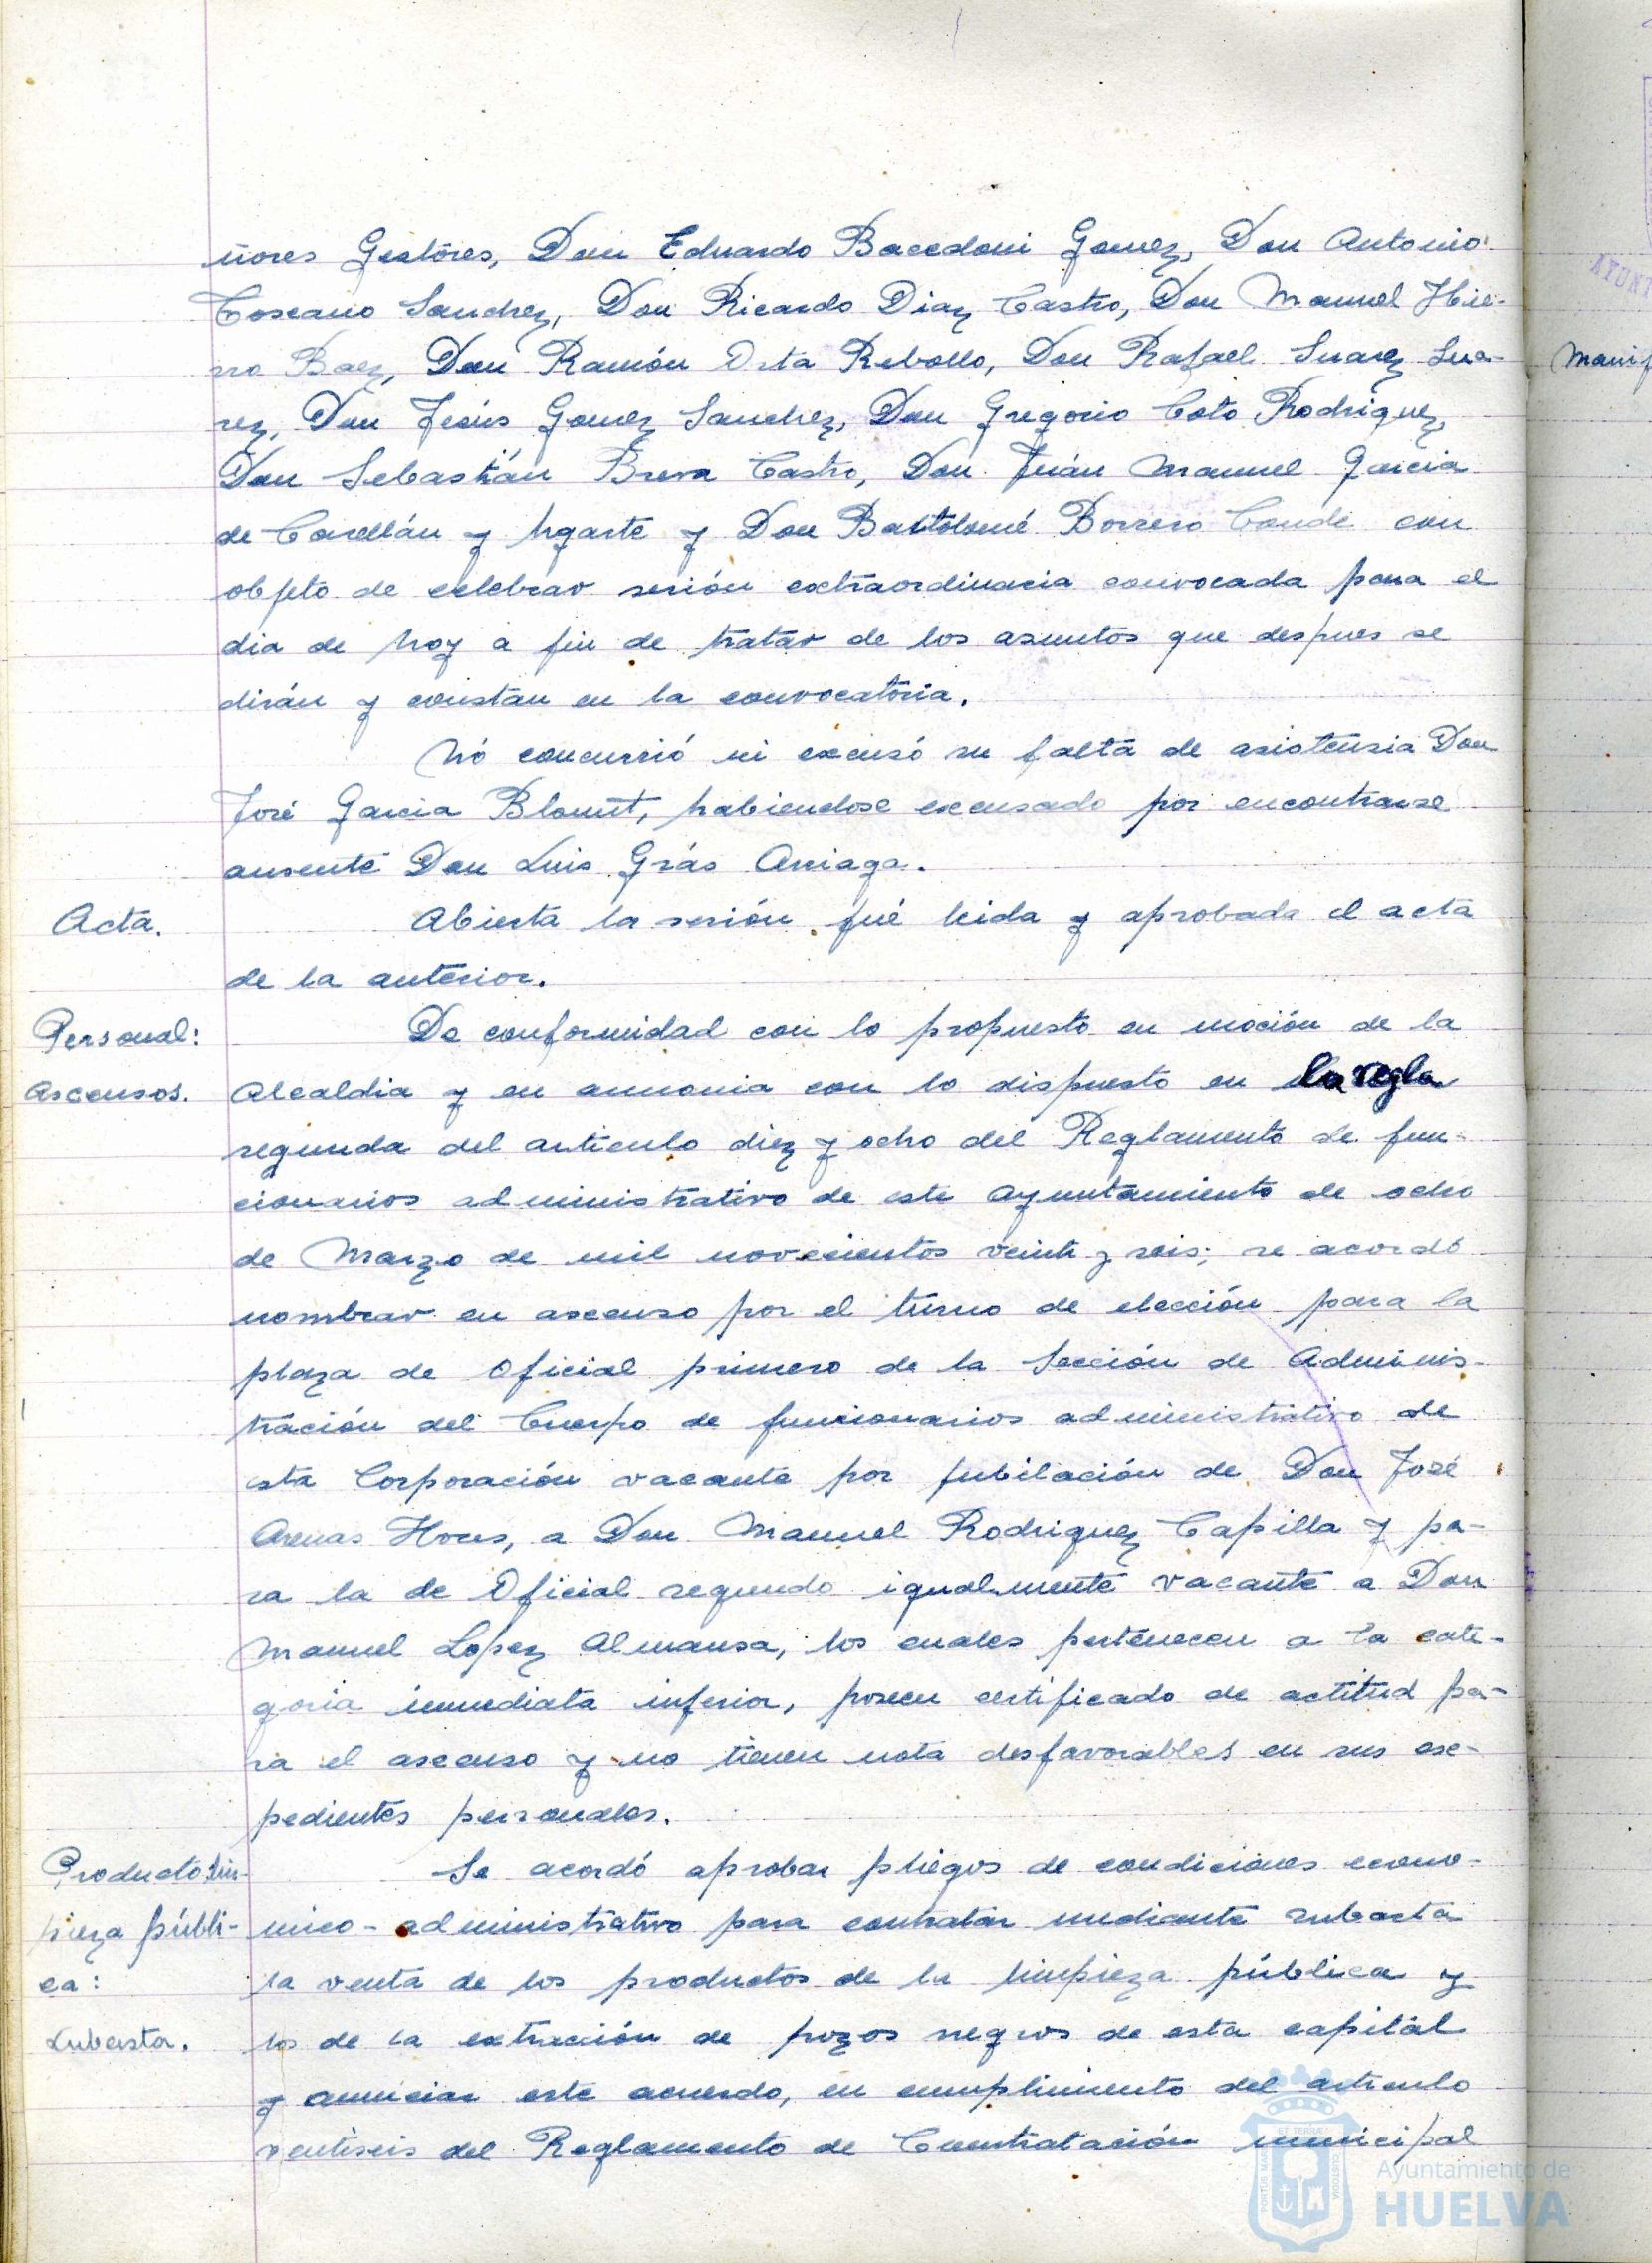 ñores Gestores, Don Eduardo Bacedoni Gomez, Don Antonio
Toscano Sanchez, Don Ricardo Diaz Castro, Don Manuel Hie-
rro Baez, Don Ramón Orta Rebollo, Don Rafael Suarez Sua-
rez, Don Jesús Gomez Sanchez, Don Gregorio Coto Rodriguez,
Don Sebastián Breva Castro, Don Juán Manuel Garcia
de Casellán y Ugarte y Don Bartolomé Borrero Conde con
objeto de celebrar sesión extraordinaria convocada para el
dia de hoy a fin de tratar de los asuntos que despues se
dirán y constan en la convocatoria.
Nó concurrió ni excusó su falta de asistensia Don
José Garcia Blount, habiendose excusado por encontrarse
ausente Don Luis Grás Arriaga.
Acta. Abierta la sesión fué leida y aprobada el acta
de la anterior.
Personal: De conformidad con lo propuesto en moción de la
Ascensos. Alcaldia y en armonia con lo dispuesto en la regla
segunda del articulo diez y ocho del Reglamento de fun-
cionarios administrativo de este Ayuntamiento de ocho
de Marzo de mil novecientos veinte y seis; se acordó
nombrar en ascenso por el turno de elección para la
plaza de Oficial primero de la Sección de Adminis-
tración del Cuerpo de funcionarios administrativo de
esta Corporación vacante por jubilación de Don José
Arenas Hores, a Don Manuel Rodriguez Capilla y pa-
ra la de Oficial segundo igualmente vacante a Don
Manuel Lopez Almansa, los cuales pertenecen a la cate-
goria inmediata inferior, poseen certificado de actitud pa-
ra el ascenso y no tienen nota desfavorables en sus ex-
pedientes personales.
Producto lim- Se acordó aprobar pliegos de condiciones econo-
pieza públi- mico-administrativo para contratar mediante subasta
ca: la venta de los productos de la limpieza pública y
Subasta. los de la extracción de pozos negros de esta capital
y anunciar este acuerdo, en cumplimiento del articulo
ventiseis del Reglamento de Cuontratación municipal
Ayuntamiento de
HUELVA